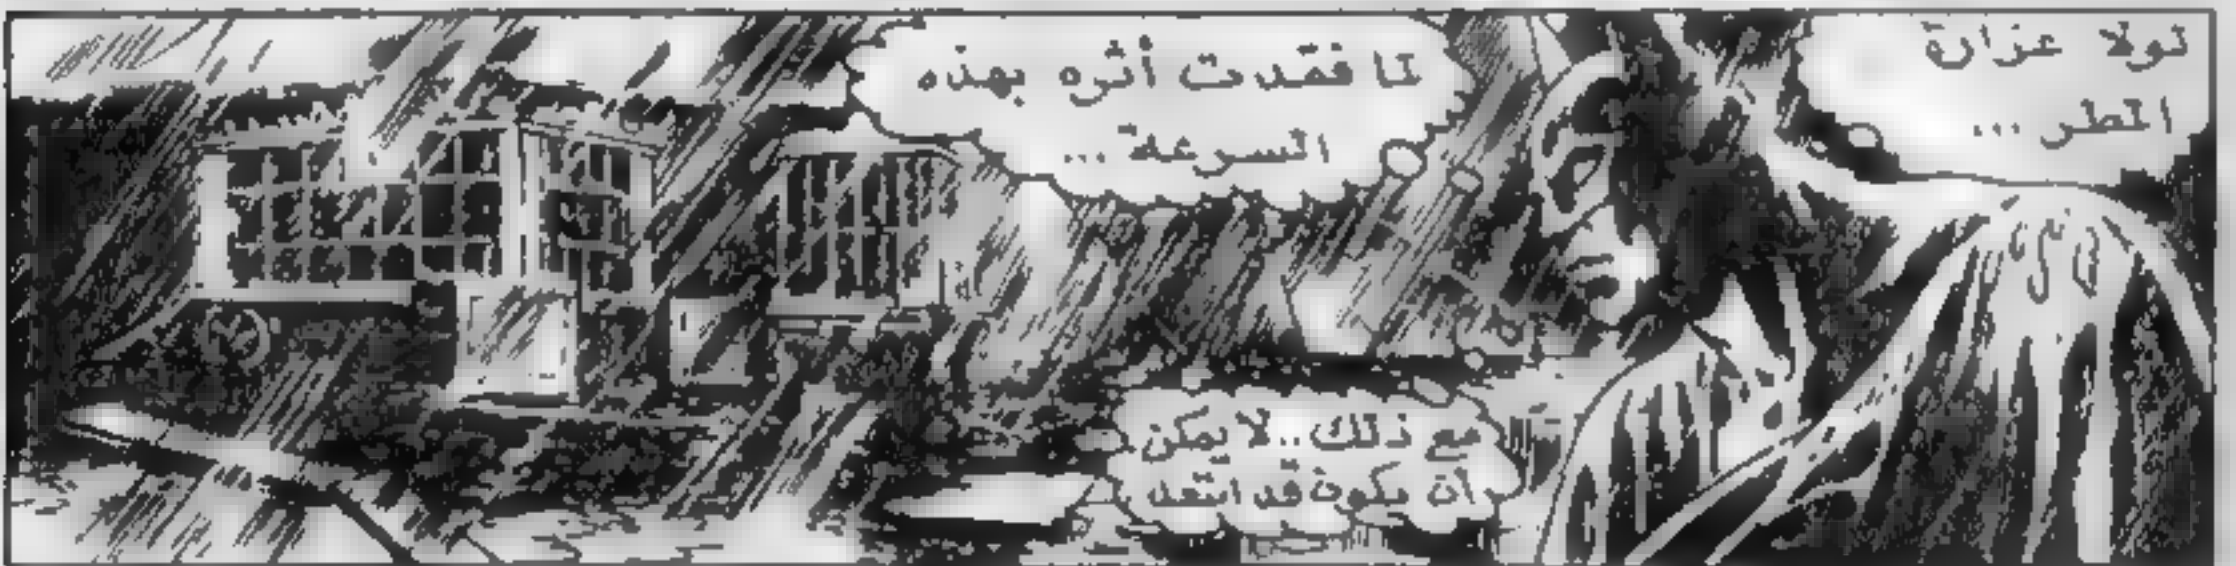 لولا غزارة
المطر ...
لما فقدت أثره بهذه
السرعة ...
مع ذلك.. لا يمكن
أن يكون قد ابتعد